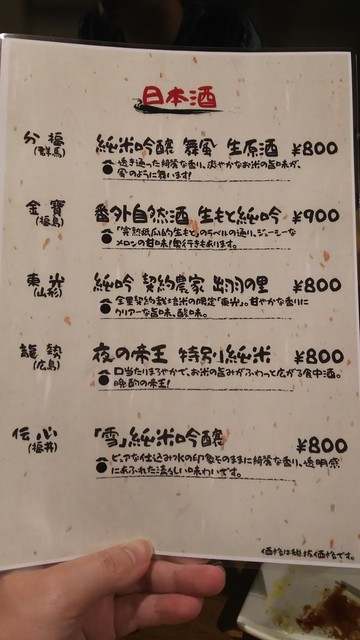 日本酒
分福 純米吟醸 舞風 生原酒 ¥800
(群馬) 透き通った綺麗な香り、爽やかなお米の旨味が、
風のように舞います!
金寶 番外自然酒 生もと純吟 ¥900
(福島) 「完熟純瓜的生もと」のラベルの通り、ジューシーな
メロンの甘味!奥行きもあります。
東光 純吟 契約農家 出羽の里 ¥800
(山形) 全量契約栽培米の限定「東光」。甘やかな香りに
クリアーな旨味、酸味。
龍勢 夜の帝王 特別純米 ¥800
(広島) 口当たりまろやかで、お米の旨みがふわっと広がる食中酒。
晩酌の帝王!
伝心 「雪」純米吟醸 ¥800
(福井) ピュアな仕込み水の印象そのままに綺麗な香り、透明感
にあふれた清々しい味わいです。
価格は税抜価格です。